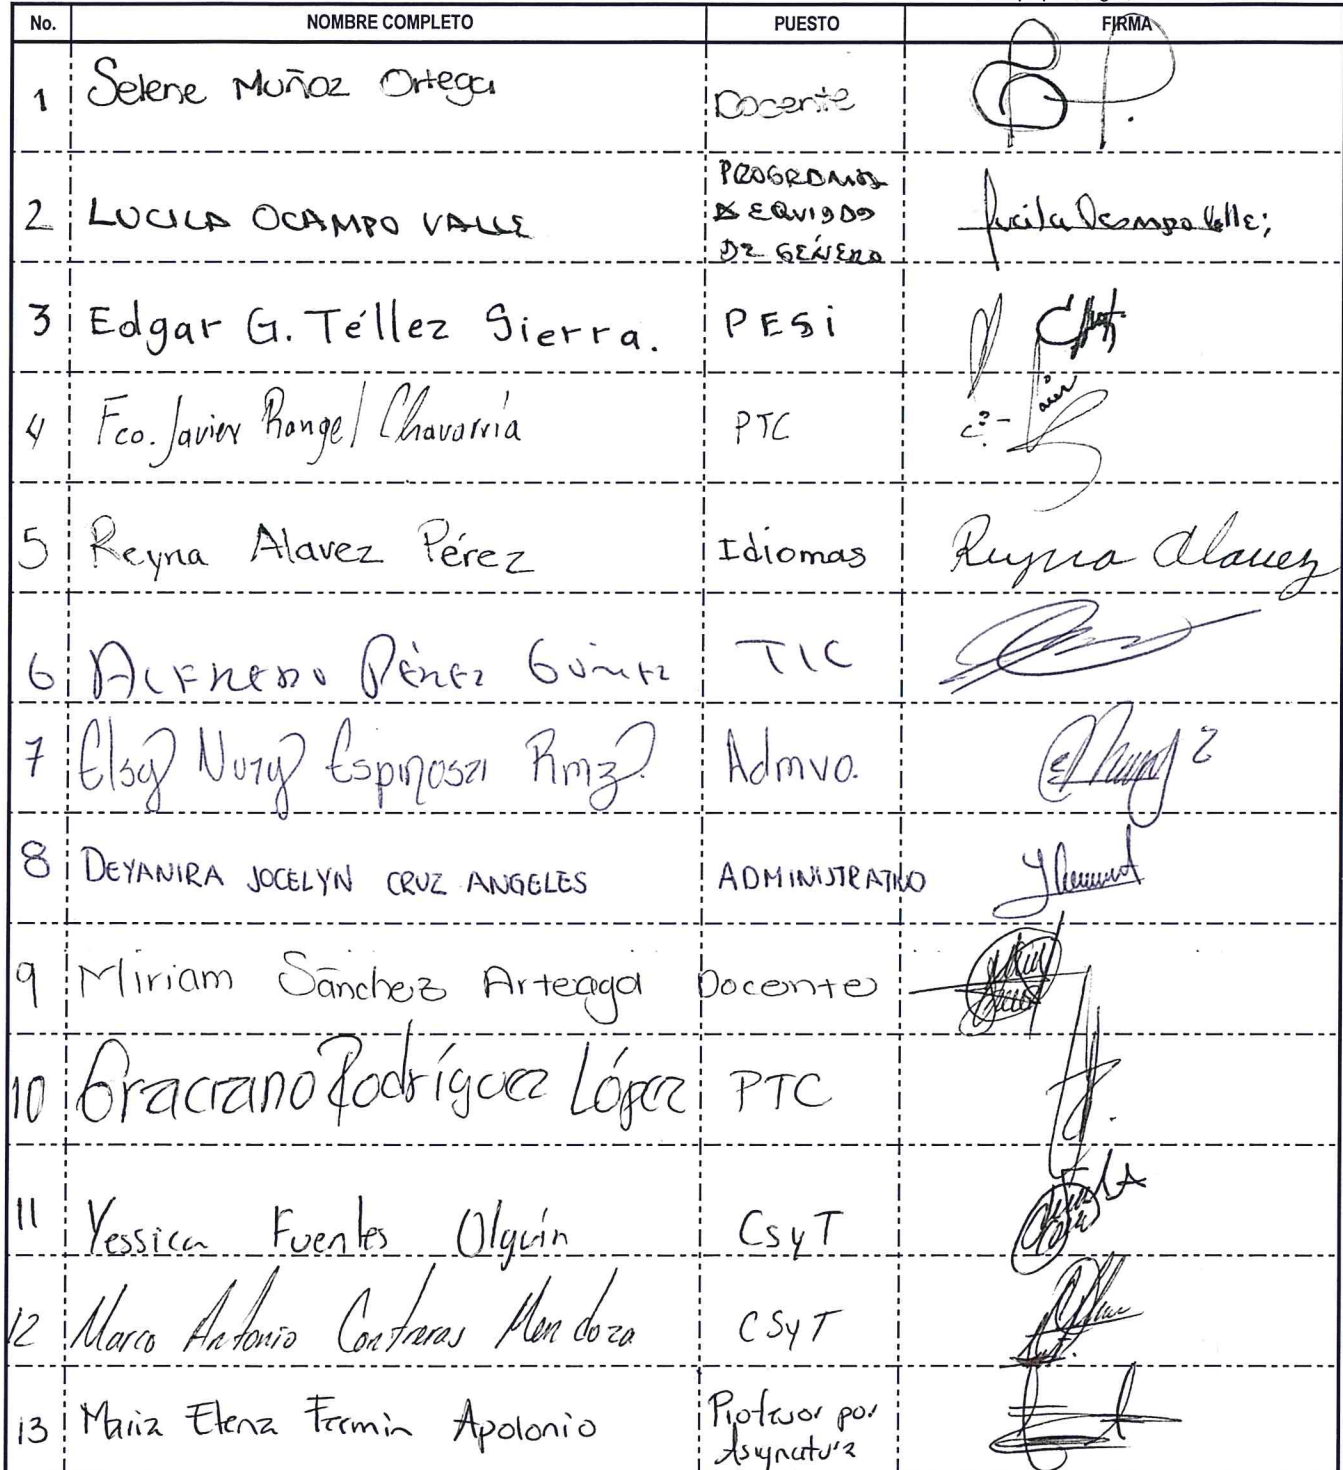 No. NOMBRE COMPLETO PUESTO FIRMA
1 Selene Muñoz Ortega Docente
2 LUCILA OCAMPO VALLE PROGRAMA DE EQUIDAD DE GÉNERO Lucila Ocampo Valle;
3 Edgar G. Téllez Sierra. PESi
4 Fco. Javier Rangel Chavarría PTC
5 Reyna Alavez Pérez Idiomas Reyna Alavez
6 ALFREDO PÉREZ GÓMEZ TIC
7 Elsy Nury Espinosa Rmz. Admvo.
8 DEYANIRA JOCELYN CRUZ ANGELES ADMINISTRATIVO
9 Miriam Sánchez Arteaga Docente
10 Graciano Rodríguez López PTC
11 Yessica Fuentes Olguín CSyT
12 Marco Antonio Contreras Mendoza CSyT
13 Maria Elena Fermin Apolonio Profesor por Asignatura